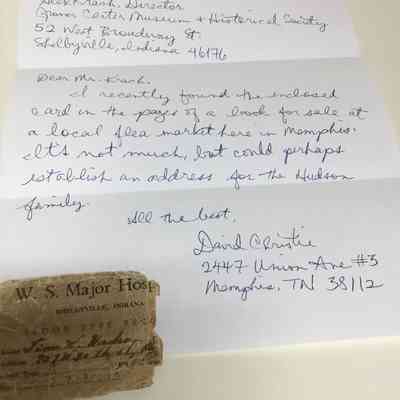 Director
Grover Center Museum & Historical Society
52 West Broadway St.
Shelbyville, Indiana 46176
Dear Mr. Krach,
I recently found the enclosed
card in the pages of a book for sale at
a local flea market here in Memphis.
It's not much, but could perhaps
establish an address for the Hudson
family.
All the best,
David Christie
2447 Union Ave #3
Memphis, TN 38112
W. S. Major Hosp
SHELBYVILLE, INDIANA
BLOOD TYPE